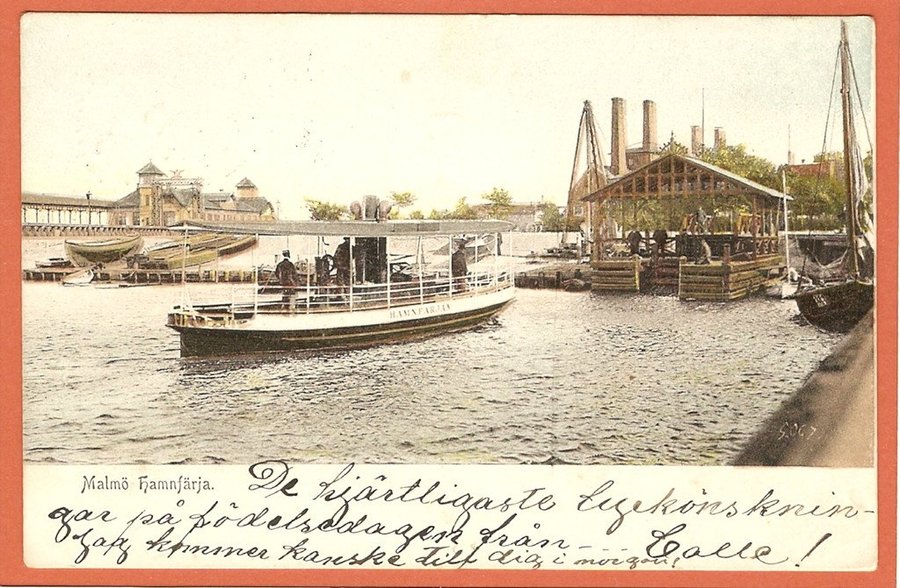 HAMNFÄRJAN
Malmö Hamnfärja.
De hjärtligaste lyckönsknin-
gar på födelsedagen från
Calle!
Jag kommer kanske till dig i morgon,